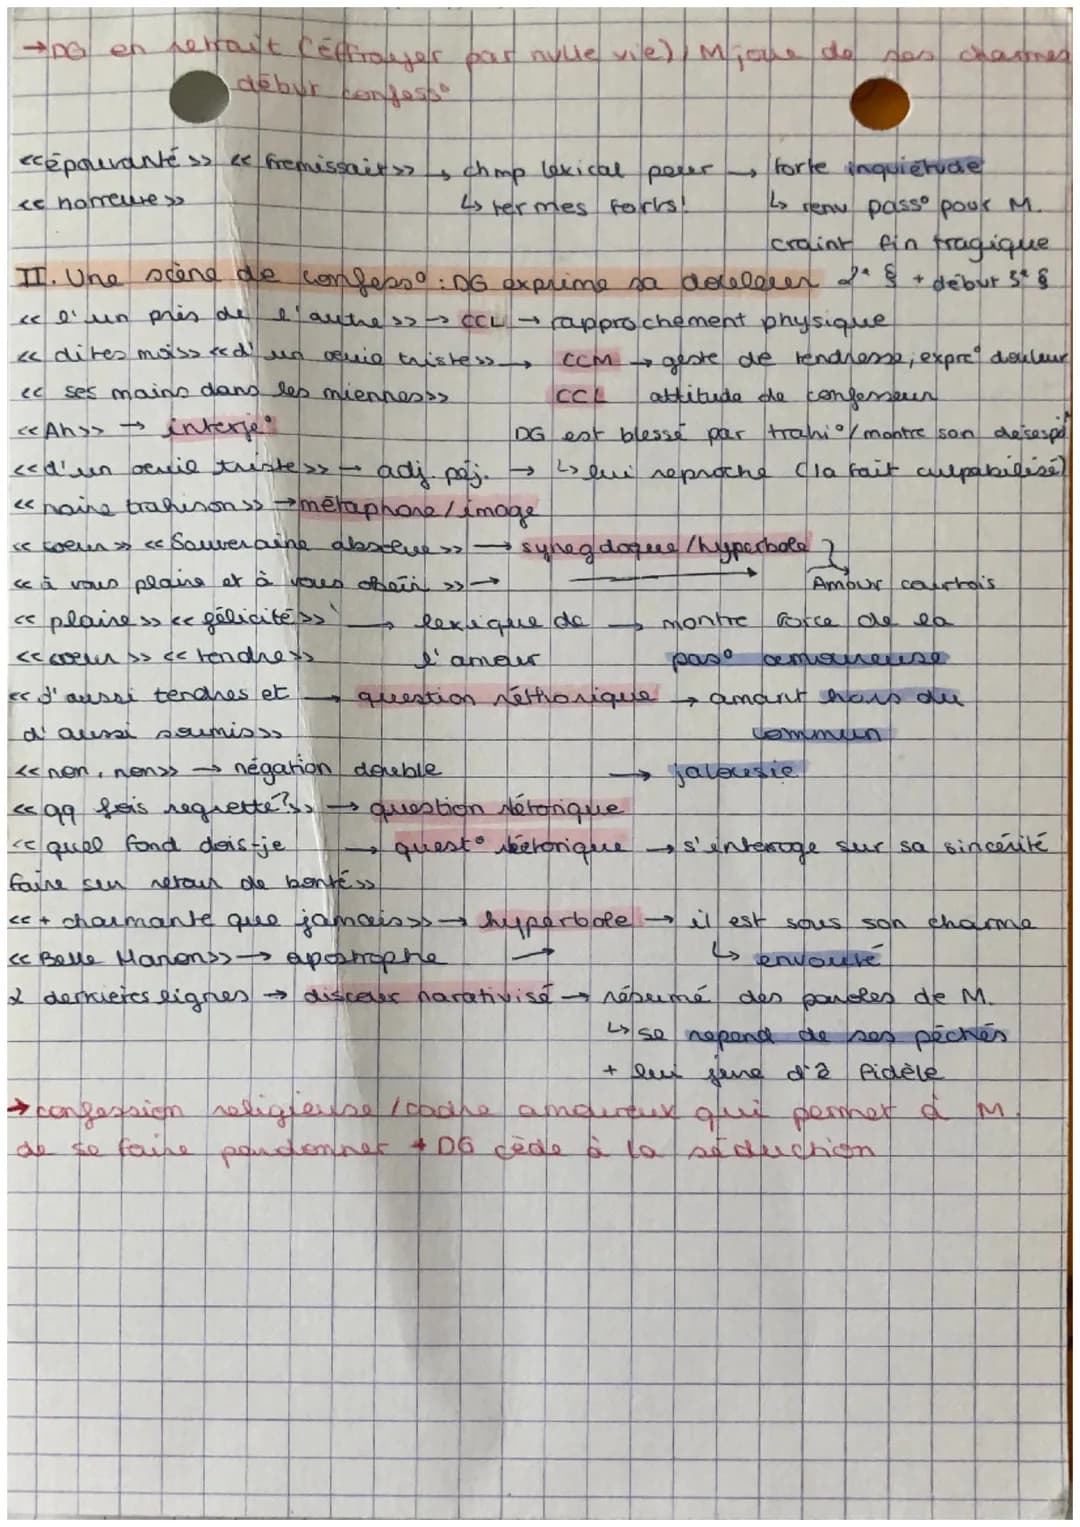 → DG en retrait (effrayer par nvlle vie) / M joue de ses charmes
début confess°
<< épouvanté >> << fremissait >> ↳ chmp lexical peur → forte inquiétude
<< horreure >> ↳ termes forts! ↳ renv pass° pour M.
craint fin tragique
II. Une scène de confess° : DG exprime sa douleur 2e § + début 3e §
<< l'un près de l'autre >> → CCL → rapprochement physique
<< dites mois >> << d'un œuie triste >> → CCM → geste de tendresse, expre° douleur
<< ses mains dans les miennes >> CCL attitude de confesseur
<< Ah >> → interje° DG est blessé par trahi°/montre son désespoi
<< d'un oeuie triste >> → adj. péj. → ↳ lui reproche (la fait culpabilisé)
<< noire trahison >> → métaphore / image
<< coeur >> << Souveraine absolue >> → synegdoque / hyperbole }
<< à vous plaire et à vous obeïr >> → → Amour courtois
<< plaire >> << félicité >> → lexique de → montre force de la
<< coeur >> << tendre >> l'amour pas° amoureuse
<< d'aussi tendres et → question réthorique → amant hors du
d'aussi soumis >> commun
<< non, non >> → négation double → jalousie
<< qq fois regretté? >> → question rétorique
<< quel fond dois-je → quest° réetorique → s'interroge sur sa sincérité
faire sur retour de bonté >>
<< + charmante que jamais >> → hyperbole → il est sous son charme
<< Belle Manon >> → apostrophe → ↳ envouté
2 dernieres lignes → discour narativisé → résumé des paroles de M.
↳ se repend de ses péchés
+ lui jure d'ê fidèle
→ confession religieuse / cadre amoureux qui permet à M.
de se faire pardonner + DG cède à la séduction